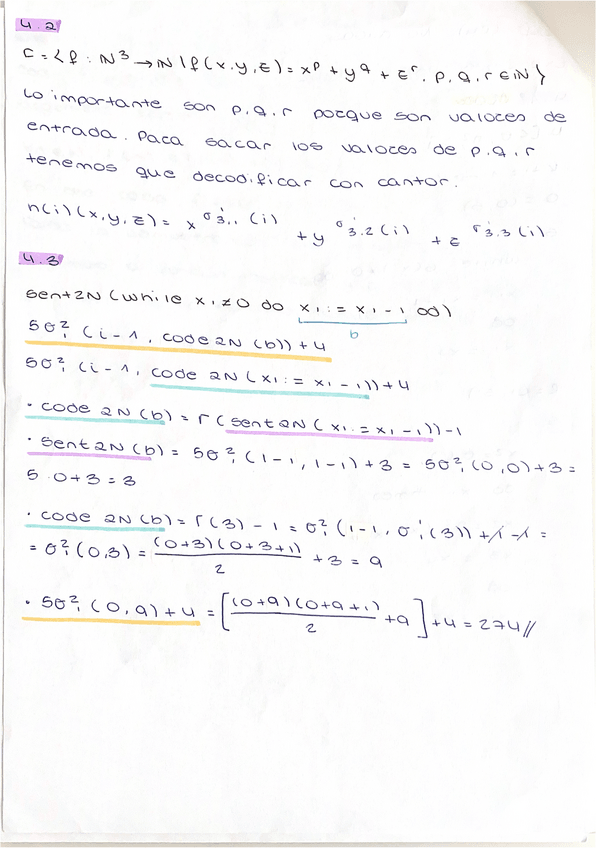 4.2
C = { f : N³ → N | f(x,y,z) = x^p + y^q + z^r, p,q,r ∈ N }
Lo importante son p,q,r porque son valores de
entrada. Para sacar los valores de p,q,r
tenemos que decodificar con cantor.
n(i)(x,y,z) = x^σ¹₃,₁(i) + y^σ¹₃,₂(i) + z^σ¹₃,₃(i)
4.3
sent2N (while x₁≠0 do x₁:=x₁-1 od)
b
5σ²₁(i-1, code2N(b))+4
5σ²₁(i-1, code 2N(x₁:=x₁-1))+4
· code 2N(b) = Γ(sent2N(x₁:=x₁-1))-1
· sent2N(b) = 5σ²₁(1-1,1-1)+3 = 5σ²₁(0,0)+3 =
5·0+3=3
· code 2N(b) = Γ(3)-1 = σ²₁(1-1, σ¹₁(3))+1-1 =
= σ²₁(0,3) = (0+3)(0+3+1)/2 + 3 = 9
· 5σ²₁(0,9)+4 = [(0+9)(0+9+1)/2 + 9] + 4 = 274//